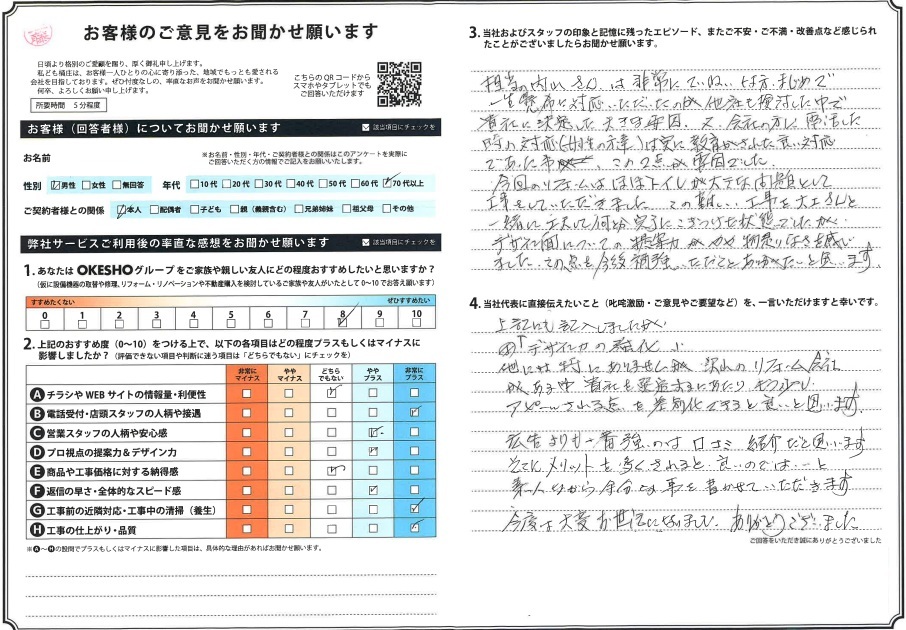 お客様のご意見をお聞かせ願います
日頃より格別のご愛顧を賜り、厚く御礼申し上げます。
私ども桶庄は、お客様一人ひとりの心に寄り添った、地域でもっとも愛される
会社を目指しております。ぜひ忖度なしの、率直なお声をお聞かせ願います。
何卒、よろしくお願い申し上げます。
所要時間 5分程度
こちらのQRコードから
スマホやタブレットでも
ご回答いただけます
お客様（回答者様）についてお聞かせ願います
該当項目にチェックを
お名前
※お名前・性別・年代・ご契約者様との関係はこのアンケートを実際に
ご回答いただく方の情報でご記入をお願いいたします。
性別 男性 女性 無回答 年代 10代 20代 30代 40代 50代 60代 70代以上
ご契約者様との関係 本人 配偶者 子ども 親（義親含む） 兄弟姉妹 祖父母 その他
弊社サービスご利用後の率直な感想をお聞かせ願います
該当項目にチェックを
1. あなたは OKESHO グループをご家族や親しい友人にどの程度おすすめしたいと思いますか？
（仮に設備機器の取替や修理、リフォーム・リノベーションや不動産購入を検討しているご家族や友人がいたとして0～10でお答え願います）
すすめたくない ぜひすすめたい
0 1 2 3 4 5 6 7 8 9 10
2. 上記のおすすめ度（0～10）をつける上で、以下の各項目はどの程度プラスもしくはマイナスに
影響しましたか？（評価できない項目や判断に迷う項目は「どちらでもない」にチェックを）
非常にマイナス ややマイナス どちらでもない ややプラス 非常にプラス
A チラシやWEBサイトの情報量・利便性
B 電話受付・店頭スタッフの人柄や接遇
C 営業スタッフの人柄や安心感
D プロ視点の提案力&デザイン力
E 商品や工事価格に対する納得感
F 返信の早さ・全体的なスピード感
G 工事前の近隣対応・工事中の清掃（養生）
H 工事の仕上がり・品質
※A～Hの設問でプラスもしくはマイナスに影響した項目は、具体的な理由があればお聞かせ願います。
3. 当社およびスタッフの印象と記憶に残ったエピソード、またご不安・ご不満・改善点など感じられ
たことがございましたらお聞かせ願います。
は非常にていねい
対応いただいたのが他社も検討した中で
貴社に決定した大きな要因、又、会社の方に電話した
時の対応(女性の方達)は実に教育がされた良い対応
であった事 この2点が要因でした。
今回のリフォームはほぼトイレが大きな問題として
工事をしていただきました この難しい工事を大工さんと
一緒に工夫して何とか完了にこぎつけた状態でしたが、
デザイン面についての提案力がやや物足りなさを感じ
ました。この点を今後補強いただくとありがたいと思います
4. 当社代表に直接伝えたいこと（叱咤激励・ご意見やご要望など）を、一言いただけますと幸いです。
上記にも記入しましたが
デザイン力の強化
他には特にありませんが 沢山のリフォーム会社
がある中 貴社を
アピールされる点を差別化できると良いと思います
広告よりも一番強いのは口コミ 紹介だと思います
そこにメリットを多くされると良いのでは…と
素人ながら余分な事を書かせていただきます
今度は大変お世話になりました ありがとうございました
ご回答をいただき誠にありがとうございました